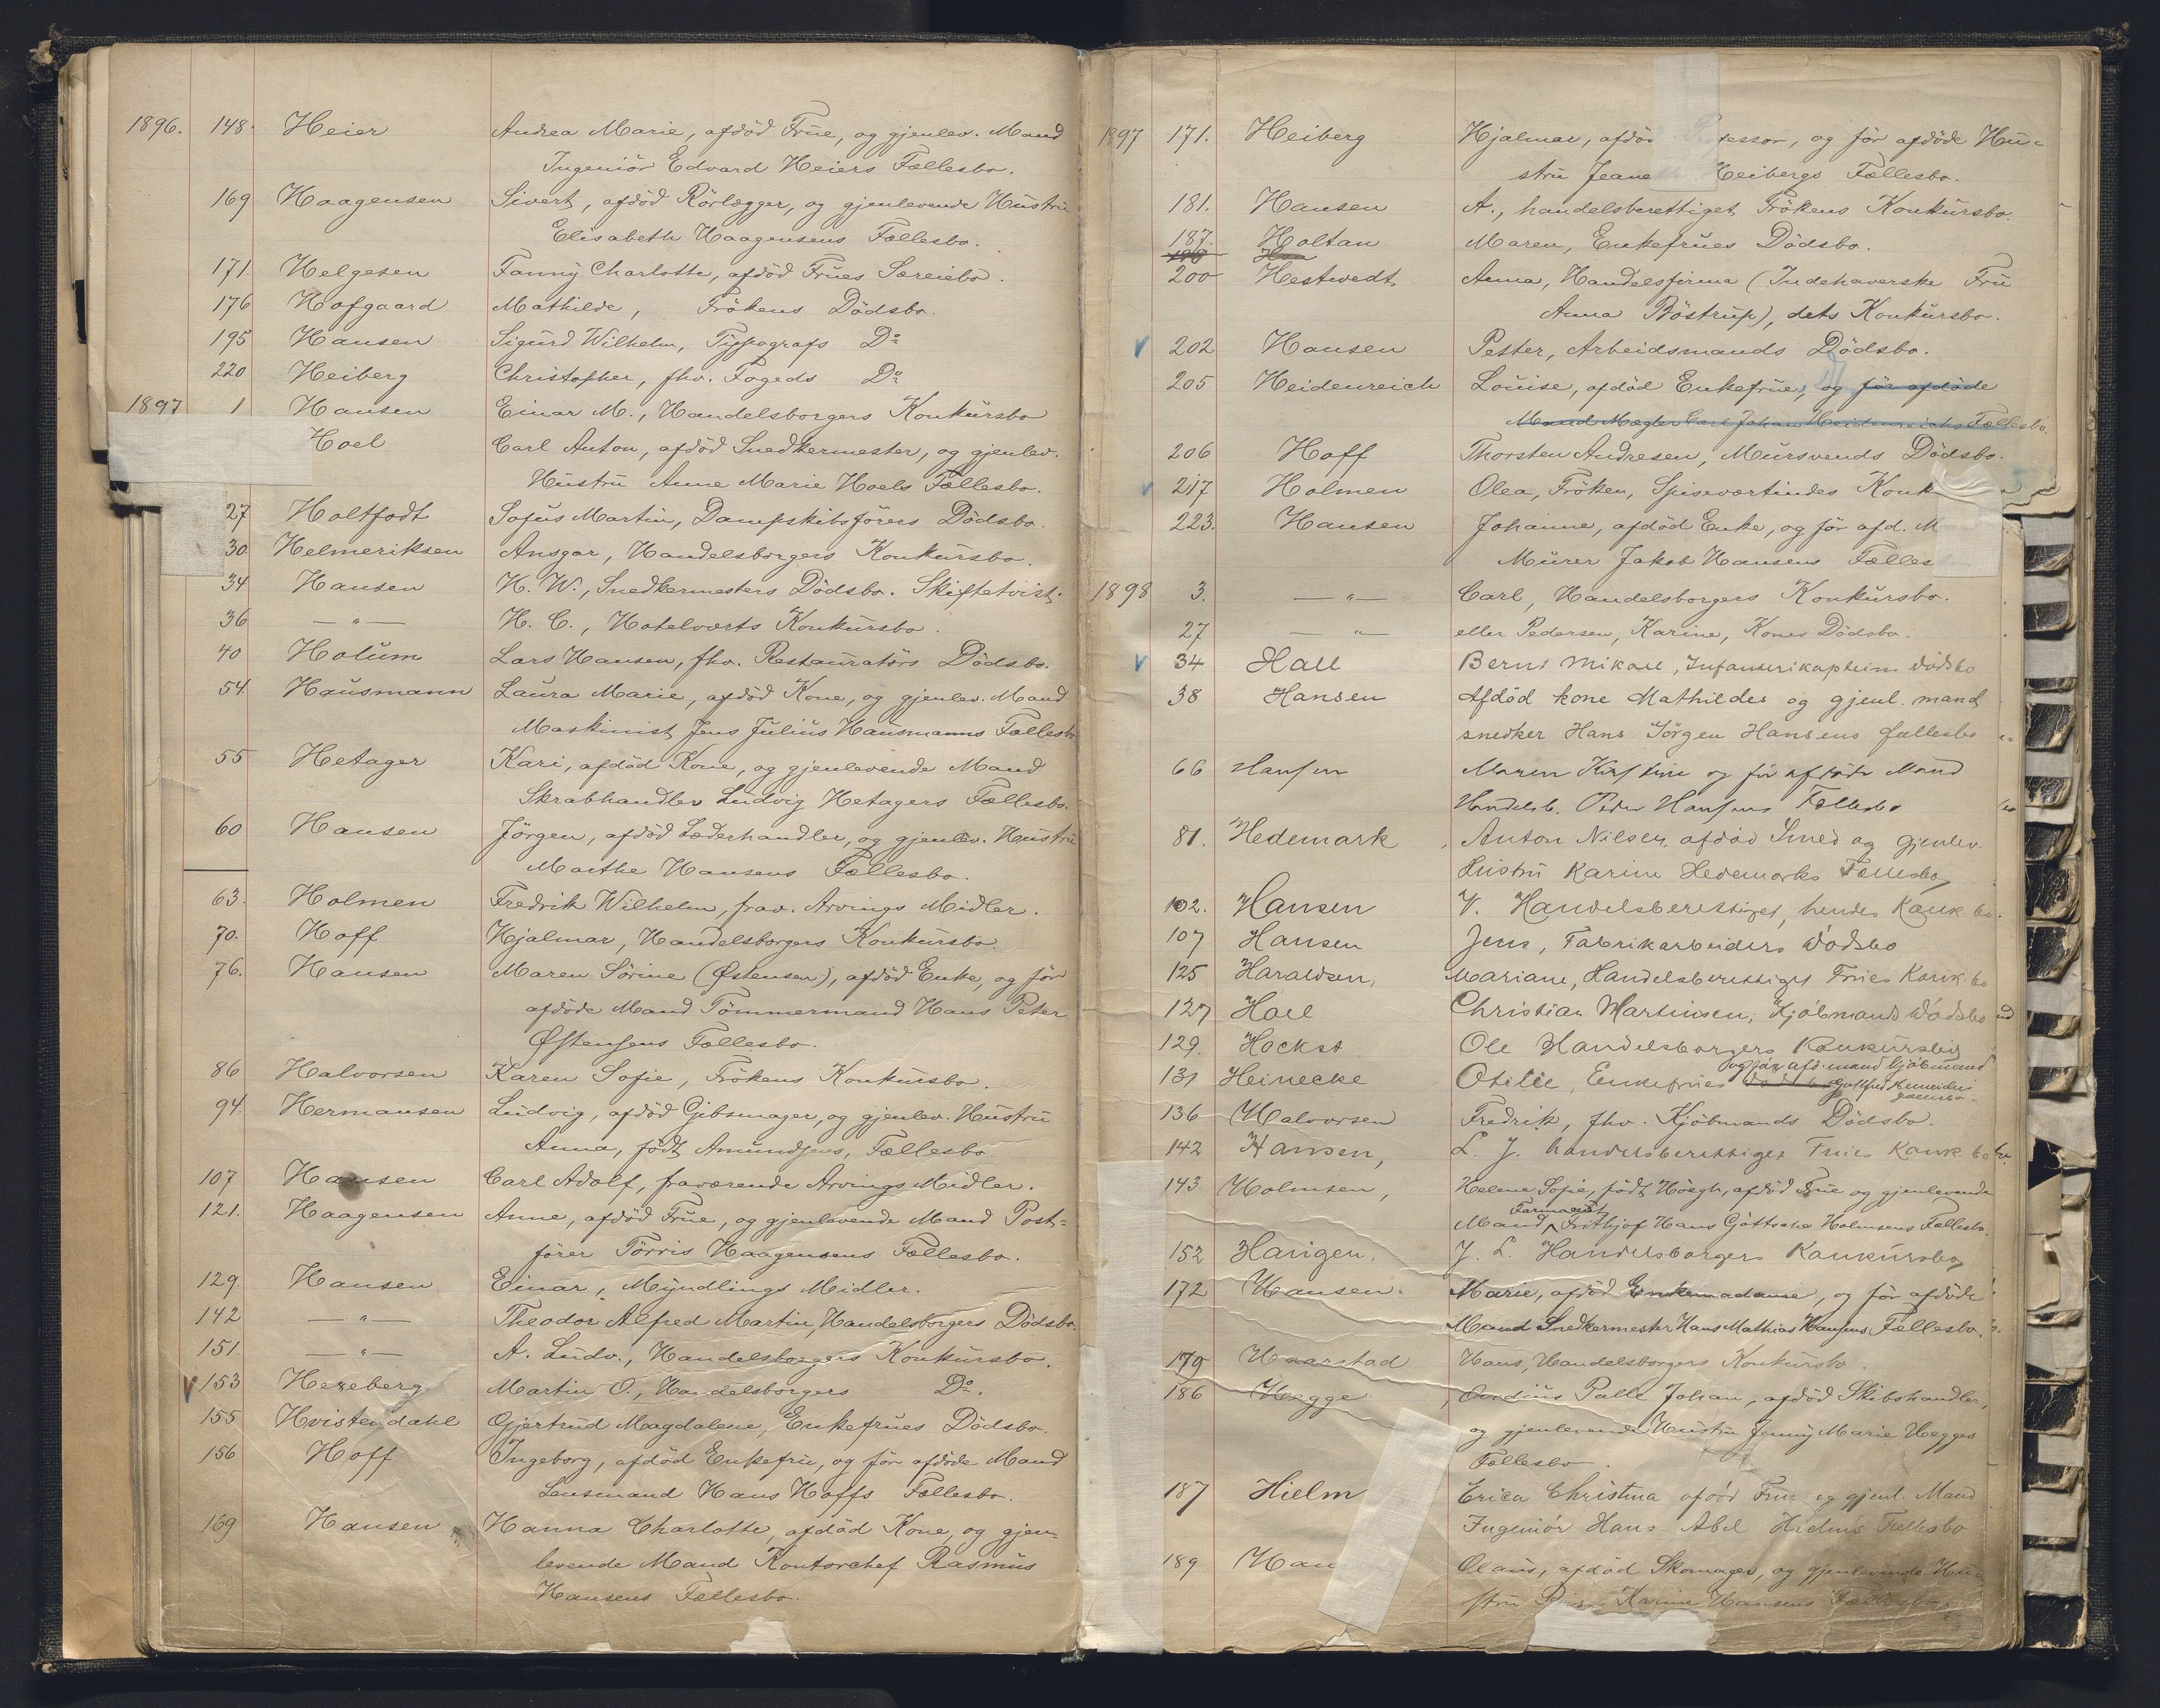 1896. 148. Heier Andrea Marie, afdöd Frue, og gjenlev. Mand
Ingeniör Edvard Heiers Fællesbo.
169 Haagensen Sivert, afdöd Rörlægger, og gjenlevende Hustru
Elisabeth Haagensens Fællesbo.
171. Helgesen Fanny Charlotte, afdöd Frues Særeiebo.
176 Hofgaard Mathilde, Frökens Dödsbo.
195 Hansen Sigurd Wilhelm, Typografs Do
220 Heiberg Christopher, fhv. Fogeds Do
1897 1 Hansen Einar M., Handelsborgers Konkursbo
Hoel Carl Anton, afdöd Snedkermester, og gjenlev.
Hustru Anne Marie Hoels Fællesbo.
27 Holtfodt Sofus Martin, Dampskibsförers Dödsbo.
30. Helmeriksen Ansgar, Handelsborgers Konkursbo.
34 Hansen H. W., Snedkermesters Dödsbo. Skiftetvist.
36 — " — H. C., Hotelværts Konkursbo.
40 Holum Lars Hansen, fhv. Restauratörs Dödsbo.
54. Hausmann Laura Marie, afdöd Kone, og gjenlev. Mand
Maskinist Jens Julius Hausmanns Fællesbo
55 Hetager Kari, afdöd Kone, og gjenlevende Mand
Skrabhandler Ludvig Hetagers Fællesbo.
60 Hansen Jörgen, afdöd Læderhandler, og gjenlev. Hustru
Marthe Hansens Fællesbo.
63. Holmen Fredrik Wilhelm, frav. Arvings Midler.
70. Hoff Hjalmar, Handelsborgers Konkursbo.
76. Hansen Maren Sörine (Østensen), afdöd Enke, og för
afdöde Mand Tömmermand Hans Peter
Østensens Fællesbo.
86 Halvorsen Karen Sofie, Frökens Konkursbo.
94. Hermansen Ludvig, afdöd Gibsmager, og gjenlev. Hustru
Anna, födt Amundsens, Fællesbo.
107 Hansen Carl Adolf, fraværende Arvings Midler.
121. Haagensen Anne, afdöd Frue, og gjenlevende Mand Post=
förer Törris Haagensens Fællesbo.
129. Hansen Einar, Myndlings Midler.
142 — " — Theodor Alfred Martin, Handelsborgers Dödsbo.
151. — " — A. Ludv., Handelsborgers Konkursbo.
153 Hexeberg Martin O., Handelsborgers Do.
155 Hvistendahl Gjertrud Magdalene, Enkefrues Dödsbo.
156 Hoff Ingeborg, afdöd Enkefru, og för afdöde Mand
Lensmand Hans Hoffs Fællesbo.
169 Hansen Hanna Charlotte, afdöd Kone, og gjen-
levende Mand Kontorchef Rasmus
Hansens Fællesbo.
1897 171. Heiberg Hjalmar, afdö fessor, og för afdöde Hu=
stru Jeane Heibergs Fællesbo.
181. Hansen A., handelsberettiget Frökens Konkursbo.
187. Holtan Maren, Enkefrues Dödsbo.
200 Hestwedt Anna, Handelsfirma (Indehaverske Fru
Anna Böstrup), dets Konkursbo.
202 Hansen Petter, Arbeidsmands Dödsbo.
205 Heidenreich Louise, afdöd Enkefrue, og för afdöde
Mand Mægler Carl Johan Heidenreichs Fællesbo.
206 Hoff Thorsten Andresen, Mursvends Dödsbo.
217 Holmen Olea, Fröken, Spiseværtindes Konk
223. Hansen Johanne, afdöd Enke, og för afd. M
Murer Jakob Hansens Fælles
1898 3. — " — Carl, Handelsborgers Konkursbo.
27 — " — eller Pedersen, Karine, Kones Dödsbo.
34 Hall Bernt Mikael, Infanterikapteins Dödsbo
38 Hansen Afdöd kone Mathildes og gjenl. mand
snedker Hans Jörgen Hansens fællesbo
66 Hansen Maren Kirstine og før afdøde Mand
Handelsb. Peder Hansens Fællesbo
81. Hedemark Anton Nilsen, afdöd Smed og gjenlev.
Hustru Karine Hedemarks Fællesbo
102. Hansen V. Handelsberettiget, hendes Konk. bo.
107 Hansen Jens, Fabrikarbeiders Dödsbo
125 Haraldsen, Mariane, Handelsberettiget Frues Konk. bo
127 Hoel Christian Martinsen, Kjöbmands Dödsbo
129. Hockst Ole Handelsborgers Konkursbo
og för afd. mand kjöbmand
131 Heinecke Otilie, Enkefrues
136 Halvorsen Fredrik, fhv. Kjöbmands Dödsbo.
142 Hansen, L. J. handelsberettiget Frues Konk. bo
143 Holmsen, Helene Sofie, födt Höegh, afdöd Frue og gjenlevende
Farmaceut
Mand Frithjof Hans Göttsche Holmsens Fællesbo.
152 Haugen. J. L. Handelsborgers Konkursbo
172 Hansen. Marie, afdöd Enkemadame, og för afdöde
Mand Snedkermester Hans Mathias Hansens Fællesbo.
179 Haarstad Hans, Handelsborgers Konkursbo.
186 Hegge Palle Johan, afdöd Skibshandler,
og gjenlevende Hustru Jenny Marie Hegges
Fællesbo.
187 Hielm Erica Christina afdöd Frue og gjenl. Mand
Ingeniör Hans Abel Hielms Fællesbo
189 Han Olaus, afdöd Skomager, og gjenlevende Hu
stru Karine Hansens Fællesbo.